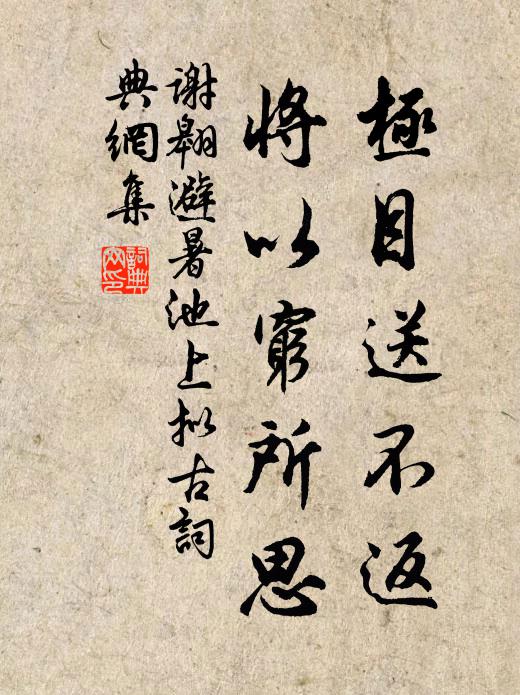 極目送不返
將以窮所思
謝翱避暑池上拟古詞
典網集
詞典
网印